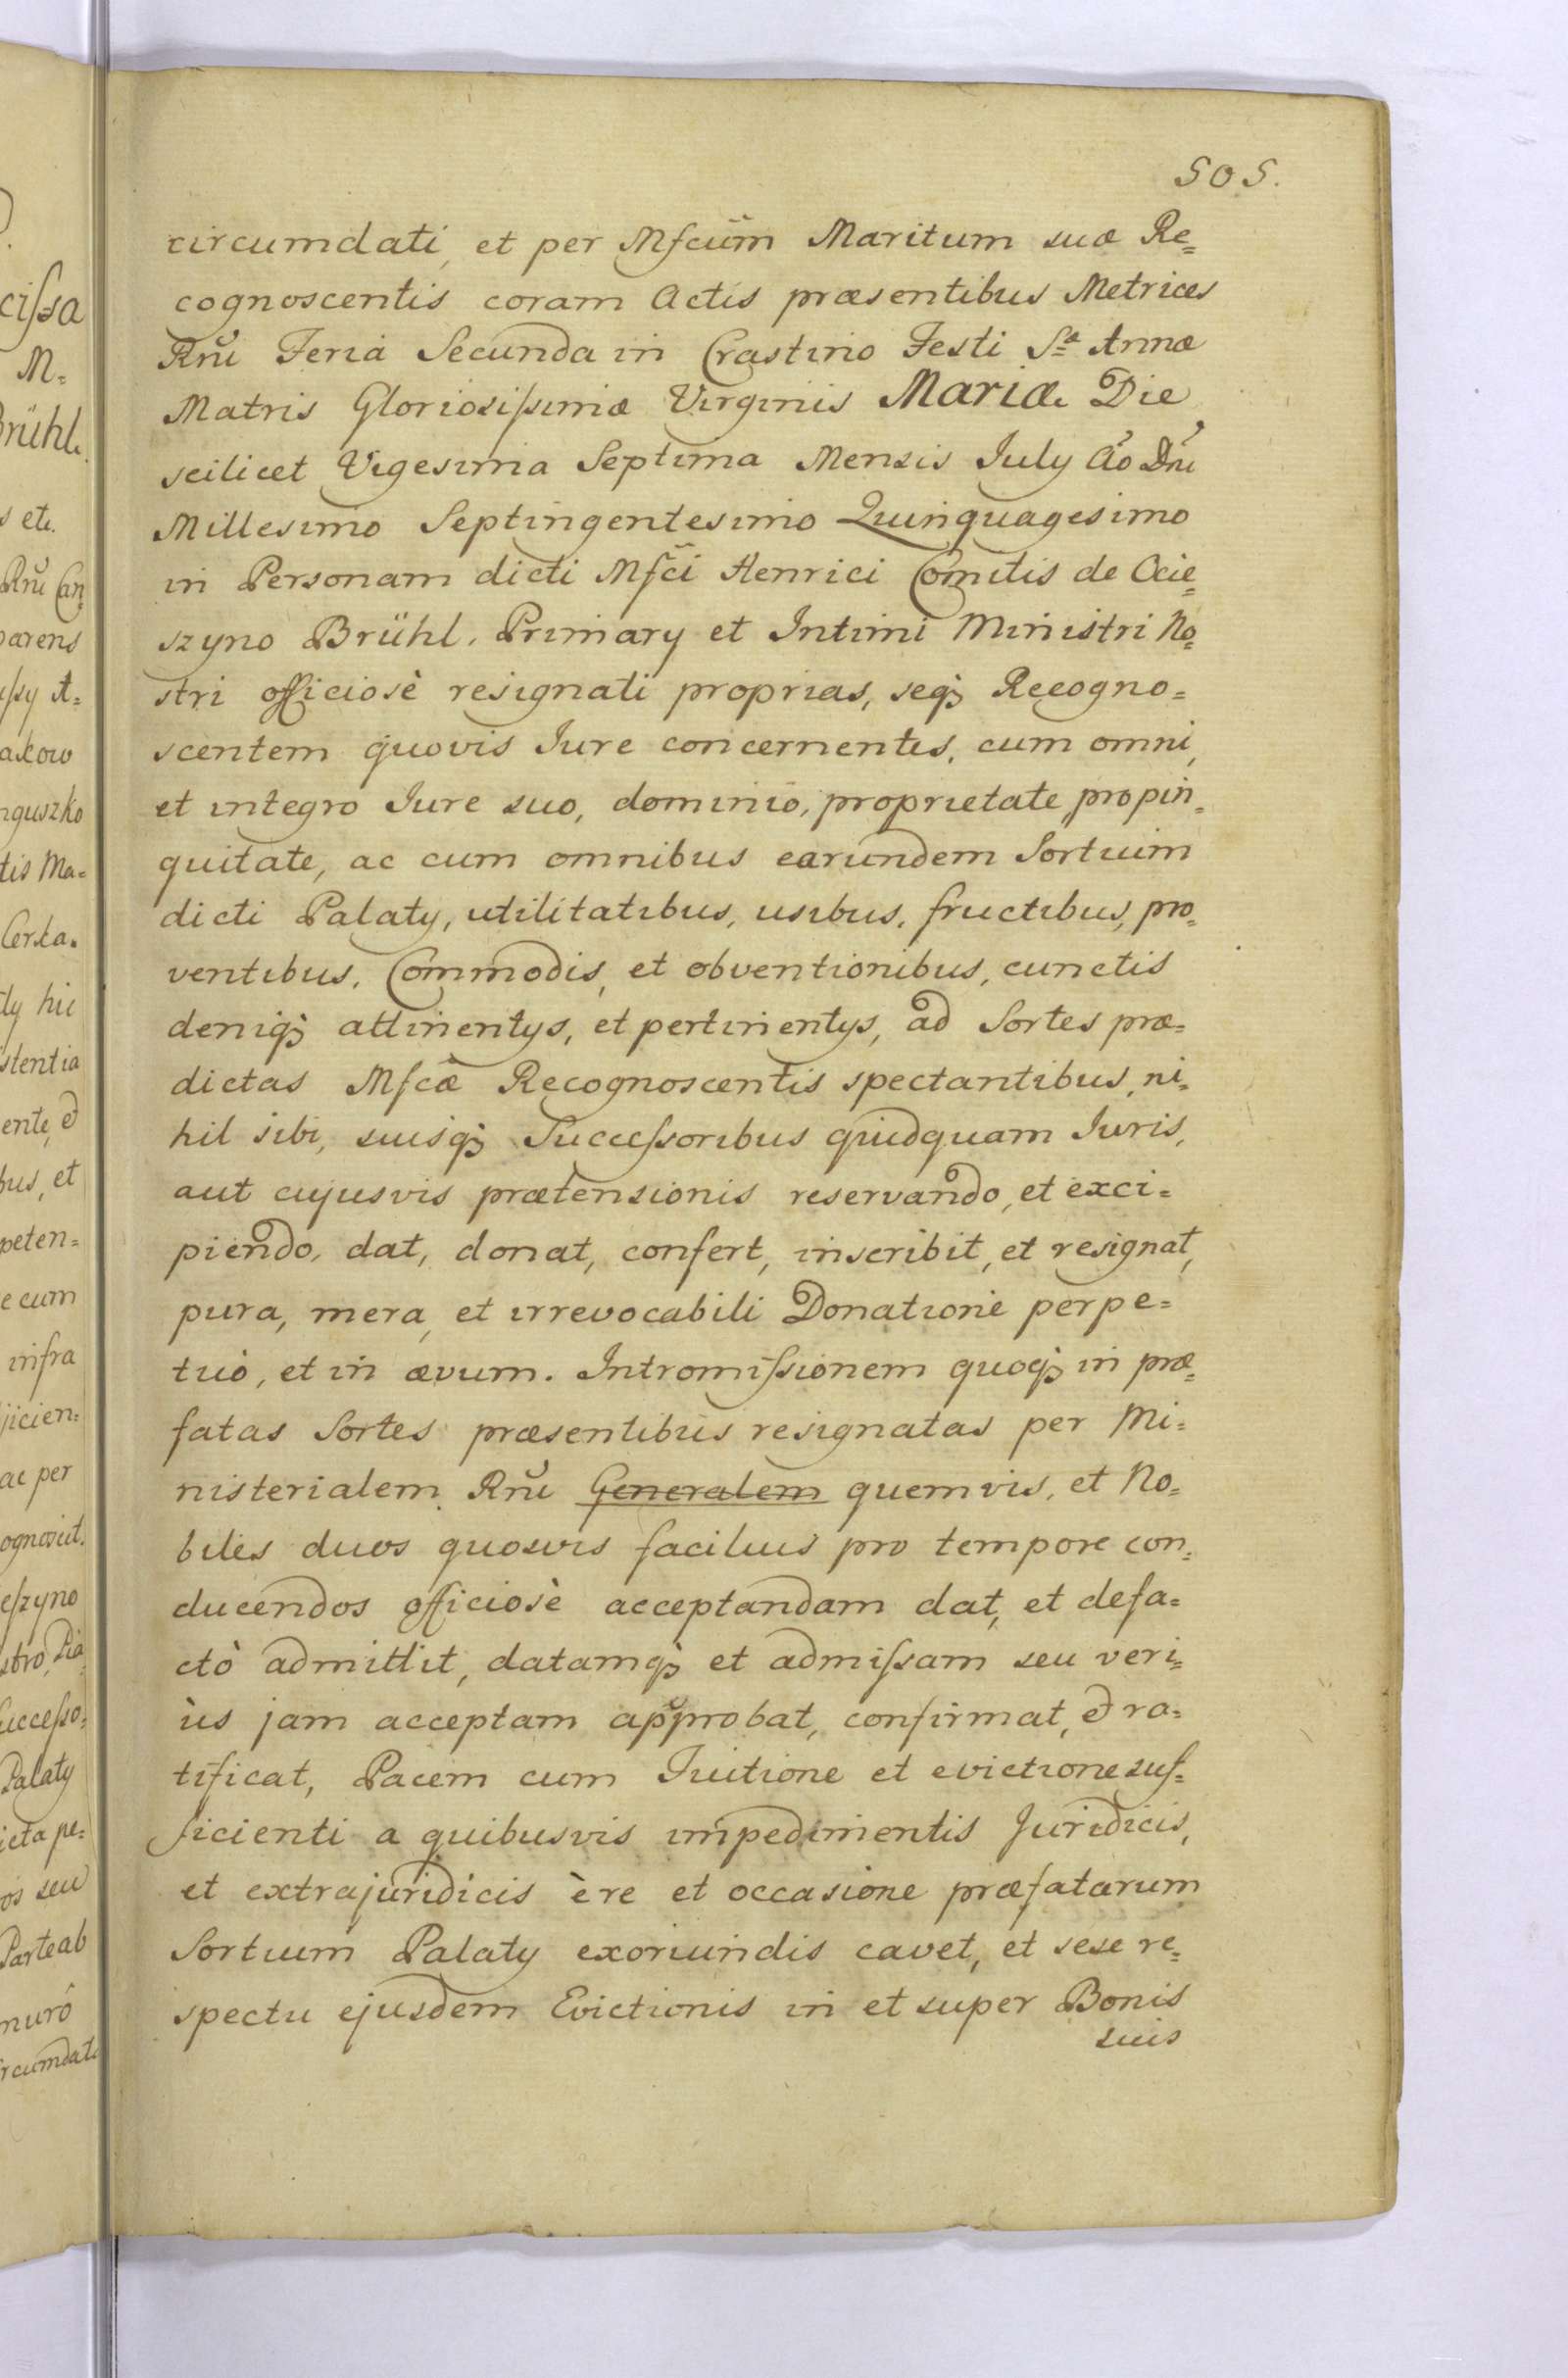 505.
circumdati, et per Mſcum̃ Maritum suæ Re=
cognoscentis coram Actis præsentibus Metrices
Rnĩ Feria Secunda in Crastino Festi Sæ Annæ
Matris Gloriosiſsimæ Virginis Mariæ Die
scilicet Vigesima Septima Mensis July Aõ Dnĩ
Millesimo Septingentesimo Quinquagesimo
in Personam dicti Mſci Henrici Comitis de Ocie=
szyno Brühl. Primary et Intimi Ministri No=
stri officiosè resignati proprias, seqꝫ Recogno=
scentem quovis Iure concernentes, cum omni,
et integro Iure suo, dominio, proprietate, propin=
quitate, ac cum omnibus earundem Sortium
dicti Palaty, utilitatibus, usibus, fructibus, pro=
ventibus, Commodis, et obventionibus, cunctis
deniqꝫ attinentys, et pertinentys, ad Sortes præ=
dictas Mſcæ Recognoscentis spectantibus, ni=
hil sibi, suisqꝫ Succeſsoribus quidquam Iuris,
aut cujusvis prætensionis reservando, et exci=
piendo, dat, donat, confert, inscribit, et resignat,
pura, mera, et irrevocabili Donatione perpe=
tuò, et in ævum. Intromiſsionem quoqꝫ in præ=
fatas Sortes præsentibus resignatas per Mi=
nisterialem Rnĩ Generalem quemvis, et No=
biles duos quosvis facilius pro tempore con=
ducendos officiosè acceptandam dat, et defa=
ctò admittit, datamqꝫ et admiſsam seu veri=
ùs jam acceptam approbat, confirmat, et ra=
tificat, Pacem cum Tuitione et evictione suf=
ficienti a quibusvis impedimentis Juridicis,
et extrajuridicis ère et occasione præfatarum
Sortium Palaty exoriundis cavet, et sese re=
spectu ejusdem Evictionis in et super Bonis
suis